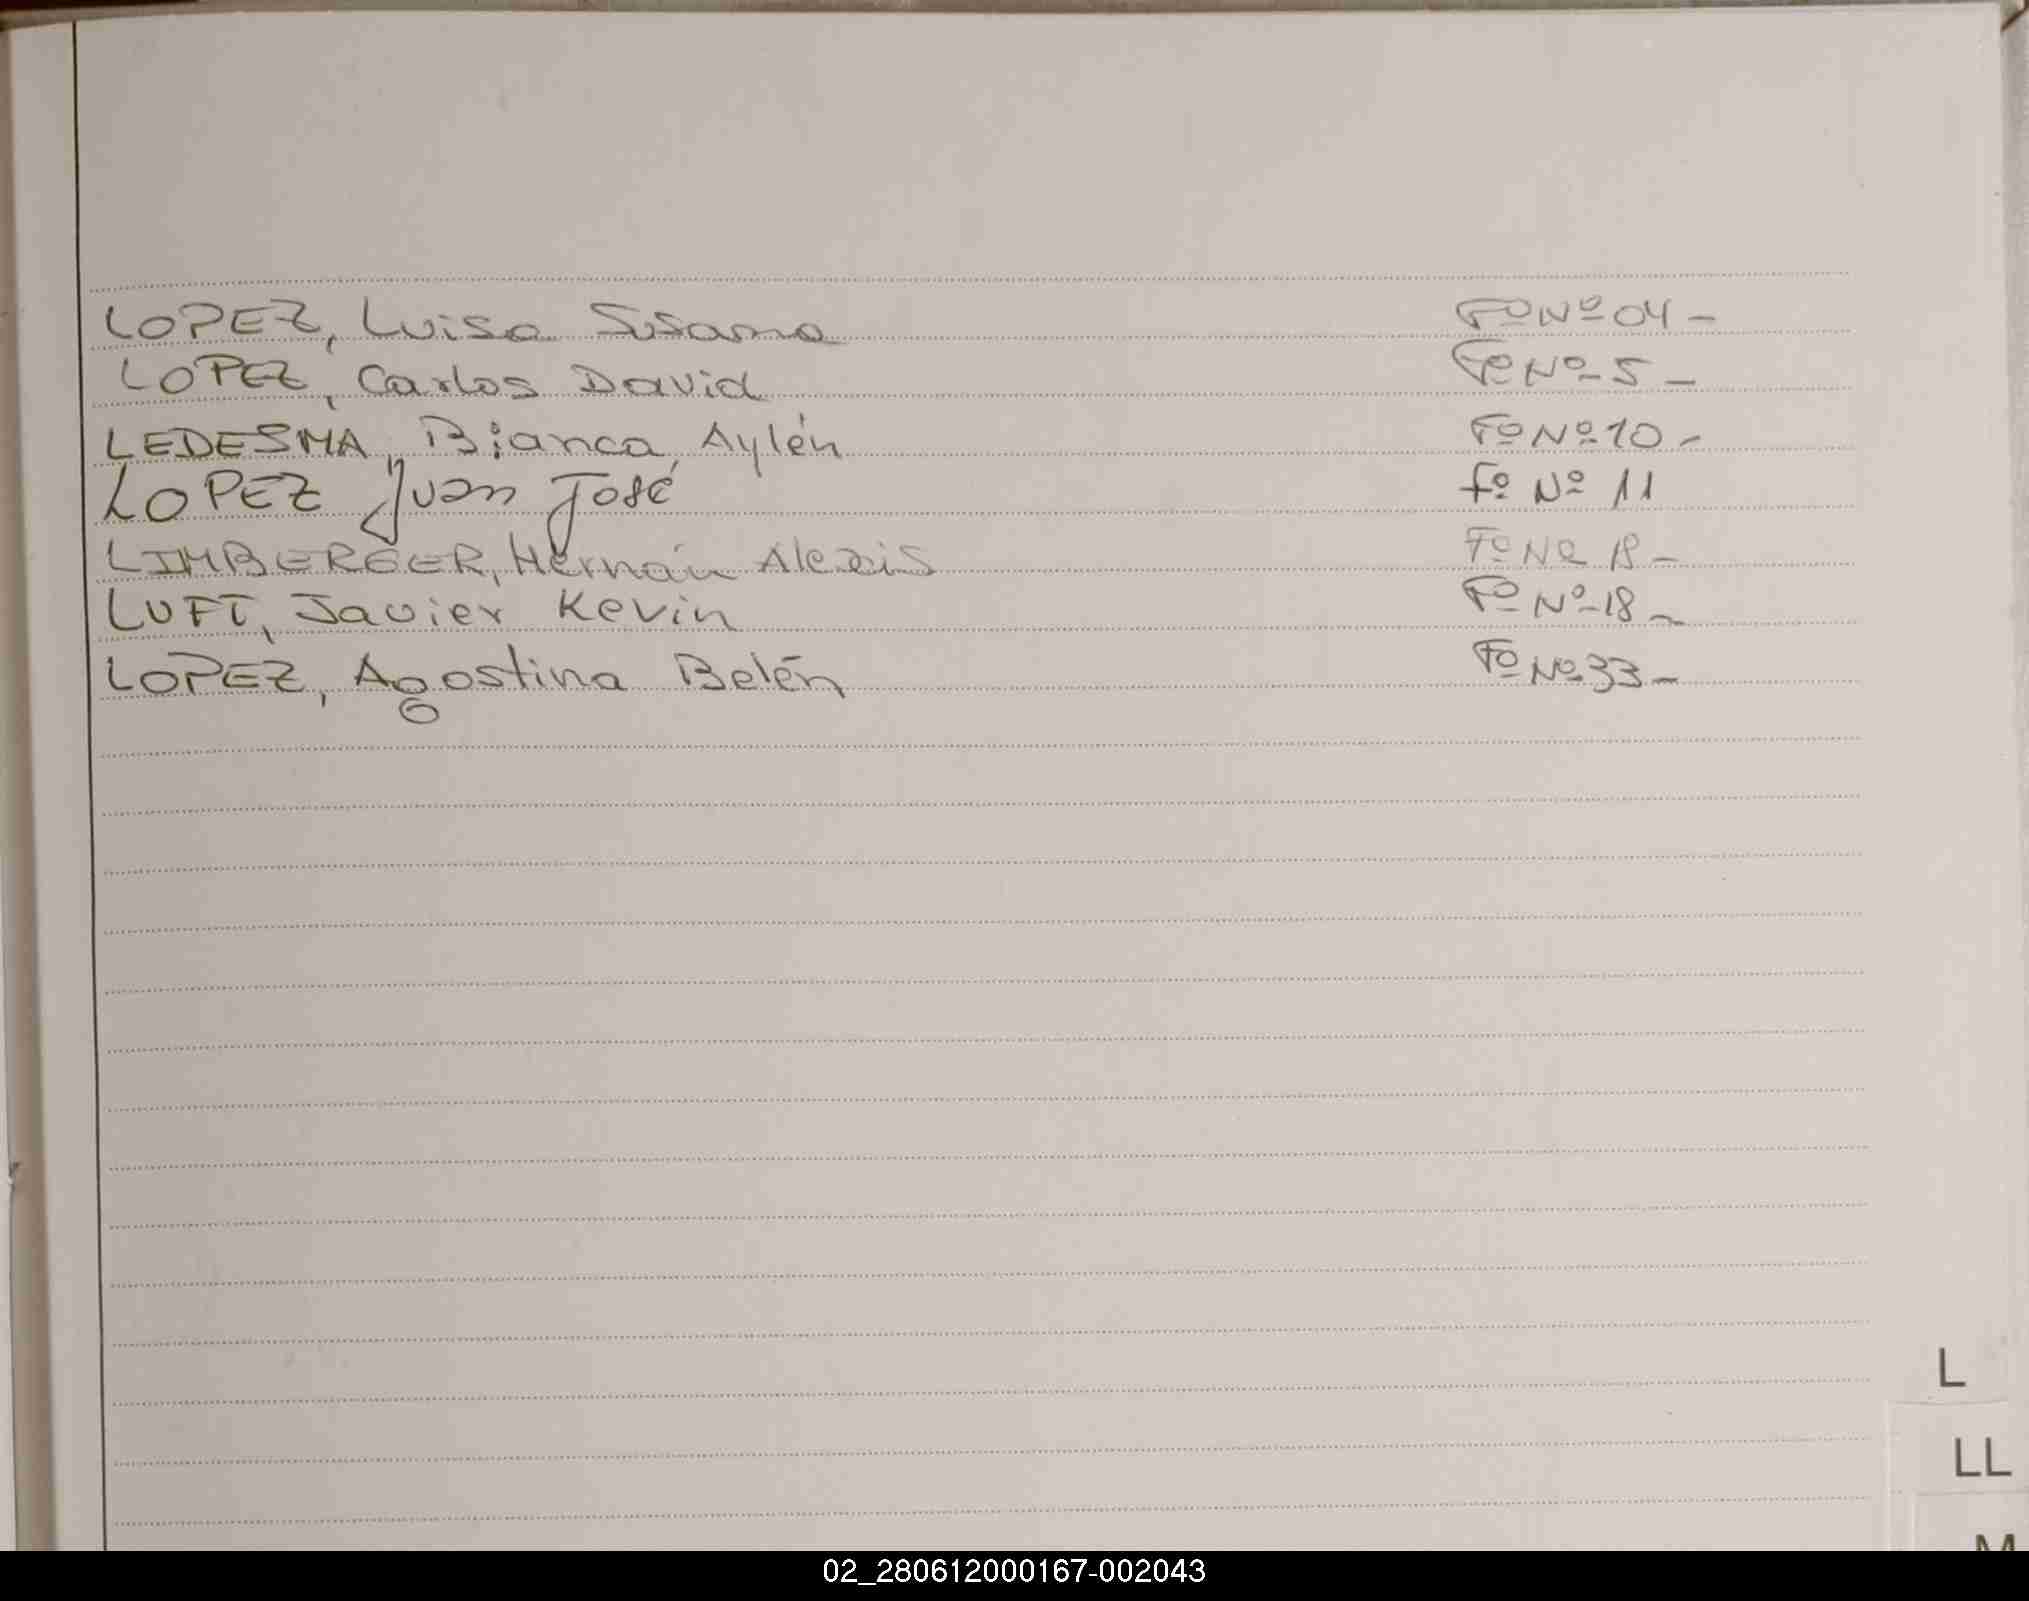 LOPEZ, Luisa Susana Fº Nº 04 -
LOPEZ, Carlos David Fº Nº 5 -
LEDESMA, Bianca Aylén Fº Nº 10 -
LOPEZ Juan José fº Nº 11
LIMBERGER, Hernán Alexis Fº Nº 18 -
LUFT, Javier Kevin Fº Nº 18 -
LOPEZ, Agostina Belén Fº Nº 33 -
L
LL
M
02_280612000167-002043